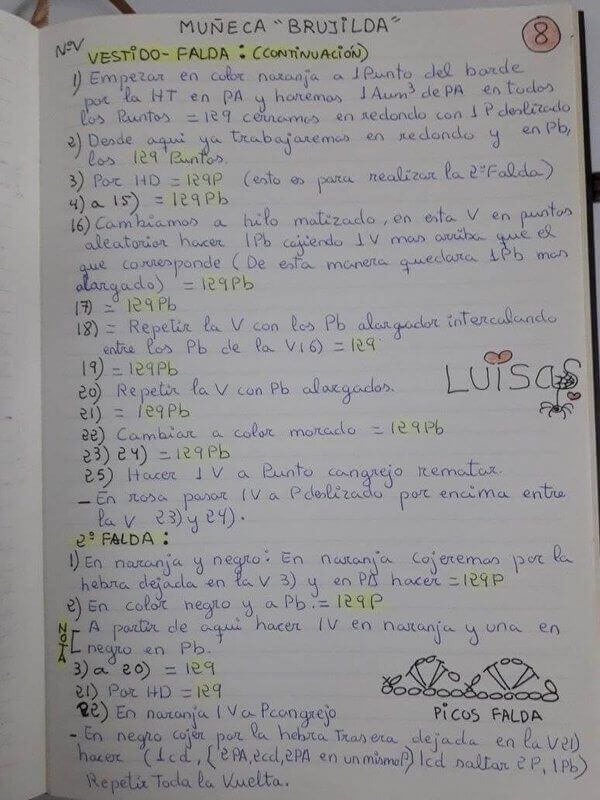 MUÑECA "BRUJILDA"
8
NºV
VESTIDO-FALDA: (CONTINUACIÓN)
1) Empezar en color naranja a 1 Punto del borde
por la HT en PA y haremos 1Aum³ de PA en todos
los Puntos = 129 cerramos en redondo con 1 P deslizado
2) Desde aqui ya trabajaremos en redondo y en Pb,
los 129 Puntos.
3) Por HD = 129P (esto es para realizar la 2ªFalda)
4) a 15) = 129Pb
16) Cambiamos a hilo matizado, en esta V en puntos
aleatorior hacer 1Pb cojiendo 1V mas arriba que el
que corresponde (De esta manera quedara 1Pb mas
alargado) = 129Pb
17) = 129Pb
18) = Repetir la V con los Pb alargador intercalando
entre los Pb de la V16) = 129
19) = 129Pb
LUISA
20) Repetir la V con Pb alargados.
21) = 129Pb
22) Cambiar a color morado = 129Pb
23) 24) = 129Pb
25) Hacer 1V a Punto cangrejo rematar.
- En rosa pasar 1V a Pdeslizado por encima entre
la V 23) y 24).
2ª FALDA:
1) En naranja y negro: En naranja cojeremos por la
hebra dejada en la V 3) y en PA hacer = 129P
2) En color negro y a Pb. = 129P
NOTA
A partir de aqui hacer 1V en naranja y una en
negro en Pb.
3) a 20) = 129
21) Por HD = 129
22) En naranja 1V a Pcangrejo
PICOS FALDA
- En negro cojer por la hebra Trasera dejada en la V21)
hacer (1cd, (2PA,2cd,2PA en un mismo P) 1cd saltar 2P, 1Pb)
Repetir Toda la Vuelta.